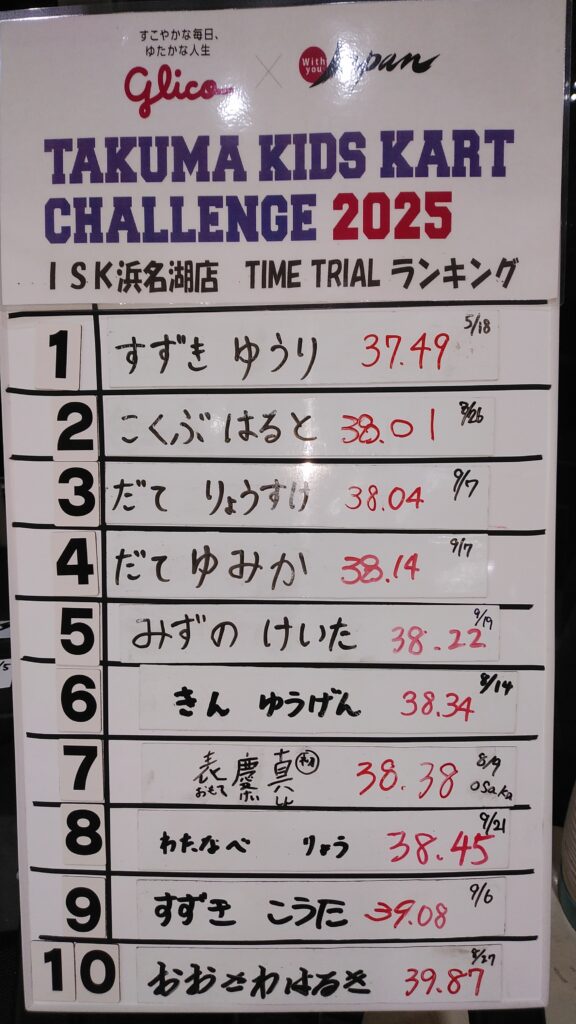 すこやかな毎日、
ゆたかな人生
Glico × With you Japan
TAKUMA KIDS KART
CHALLENGE 2025
ISK浜名湖店 TIME TRIAL ランキング
1 すずき ゆうり 37.49 5/18
2 こくぶ はると 38.01 8/26
3 だて りょうすけ 38.04 9/7
4 だて ゆみか 38.14 9/7
5 みずの けいた 38.22 9/19
6 きん ゆうげん 38.34 8/14
7 表 慶 真 38.38 8/9
おもて けい しん osaka
8 わたなべ りょう 38.45 9/21
9 すずき こうた 39.08 9/6
10 おおさわはるき 39.87 8/27